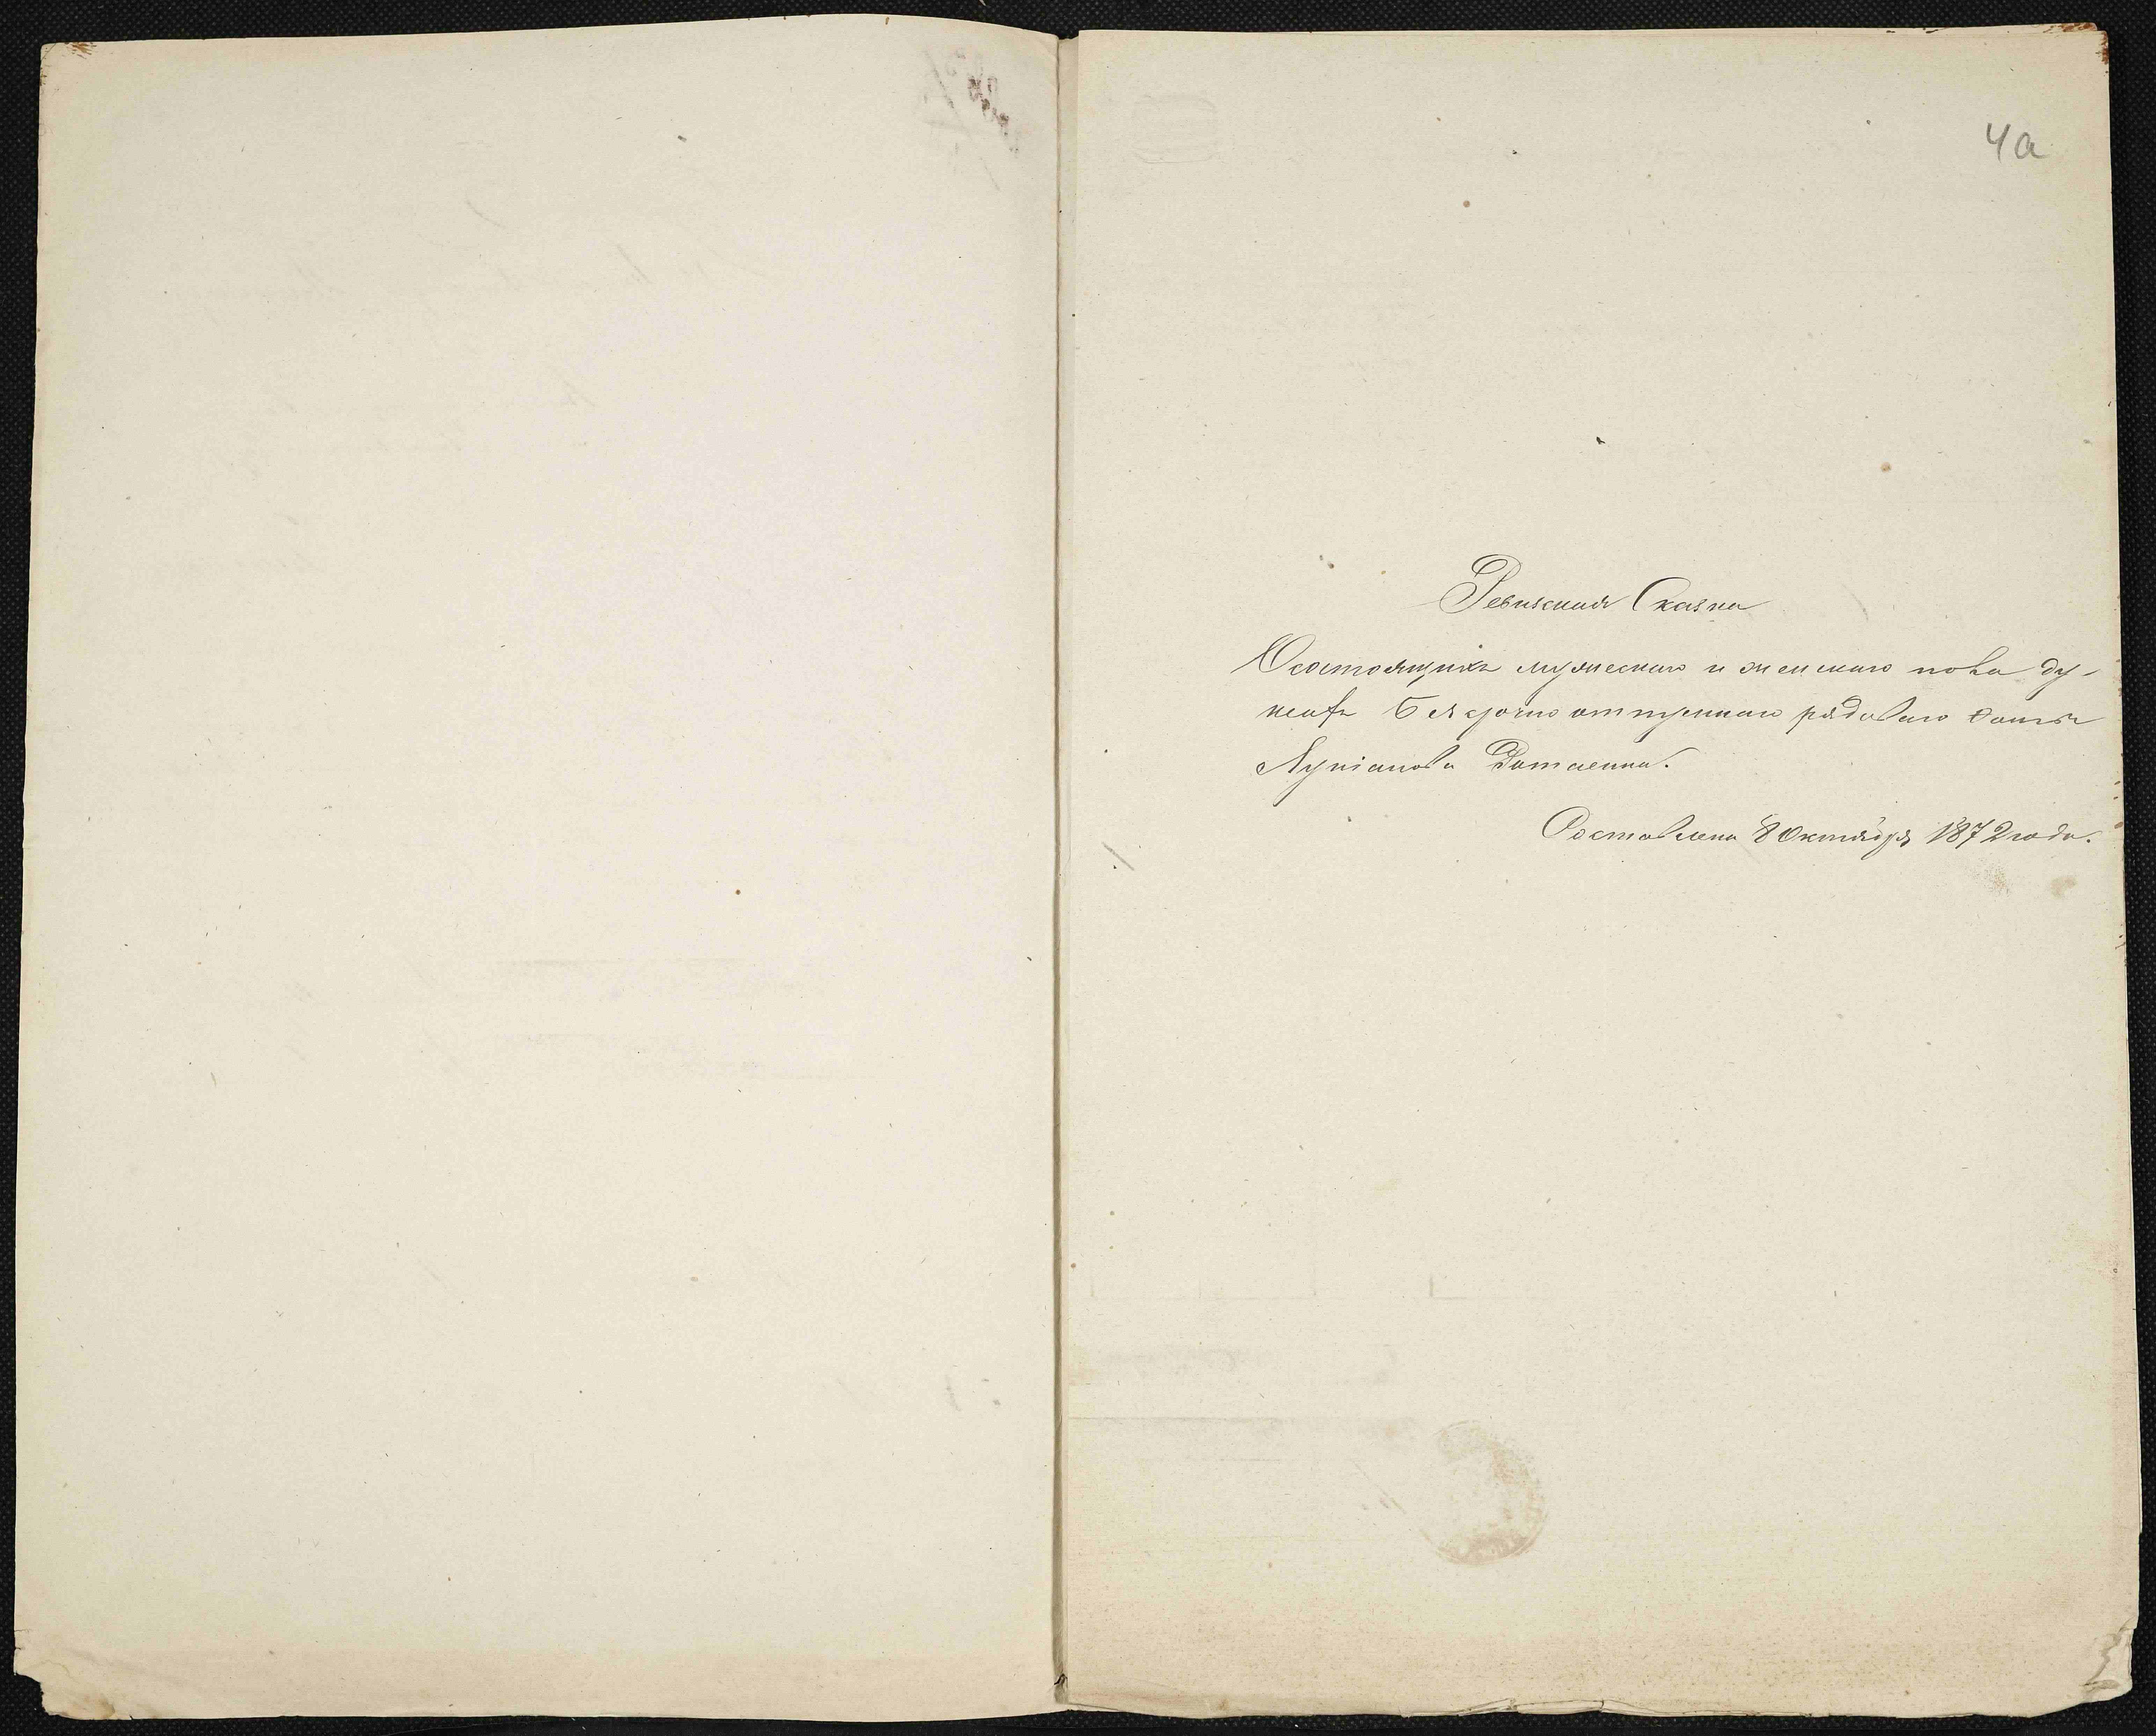 4а
Ревизская Сказка
О состоящихъ мужескаго и женскаго пола ду-
шахъ Безсрочно отпускнаго рядоваго Фомы
Лукіанова
Составлена 8 Октября 1872 года.